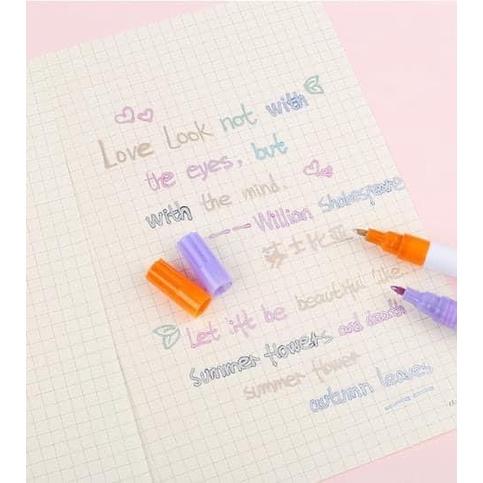 Love Look not with
the eyes, but
with the mind.
—— Willian Shakespeare
莎士比亚
Let ift be beautiful like
Summer flowers and death
summer flower
autumn leaves